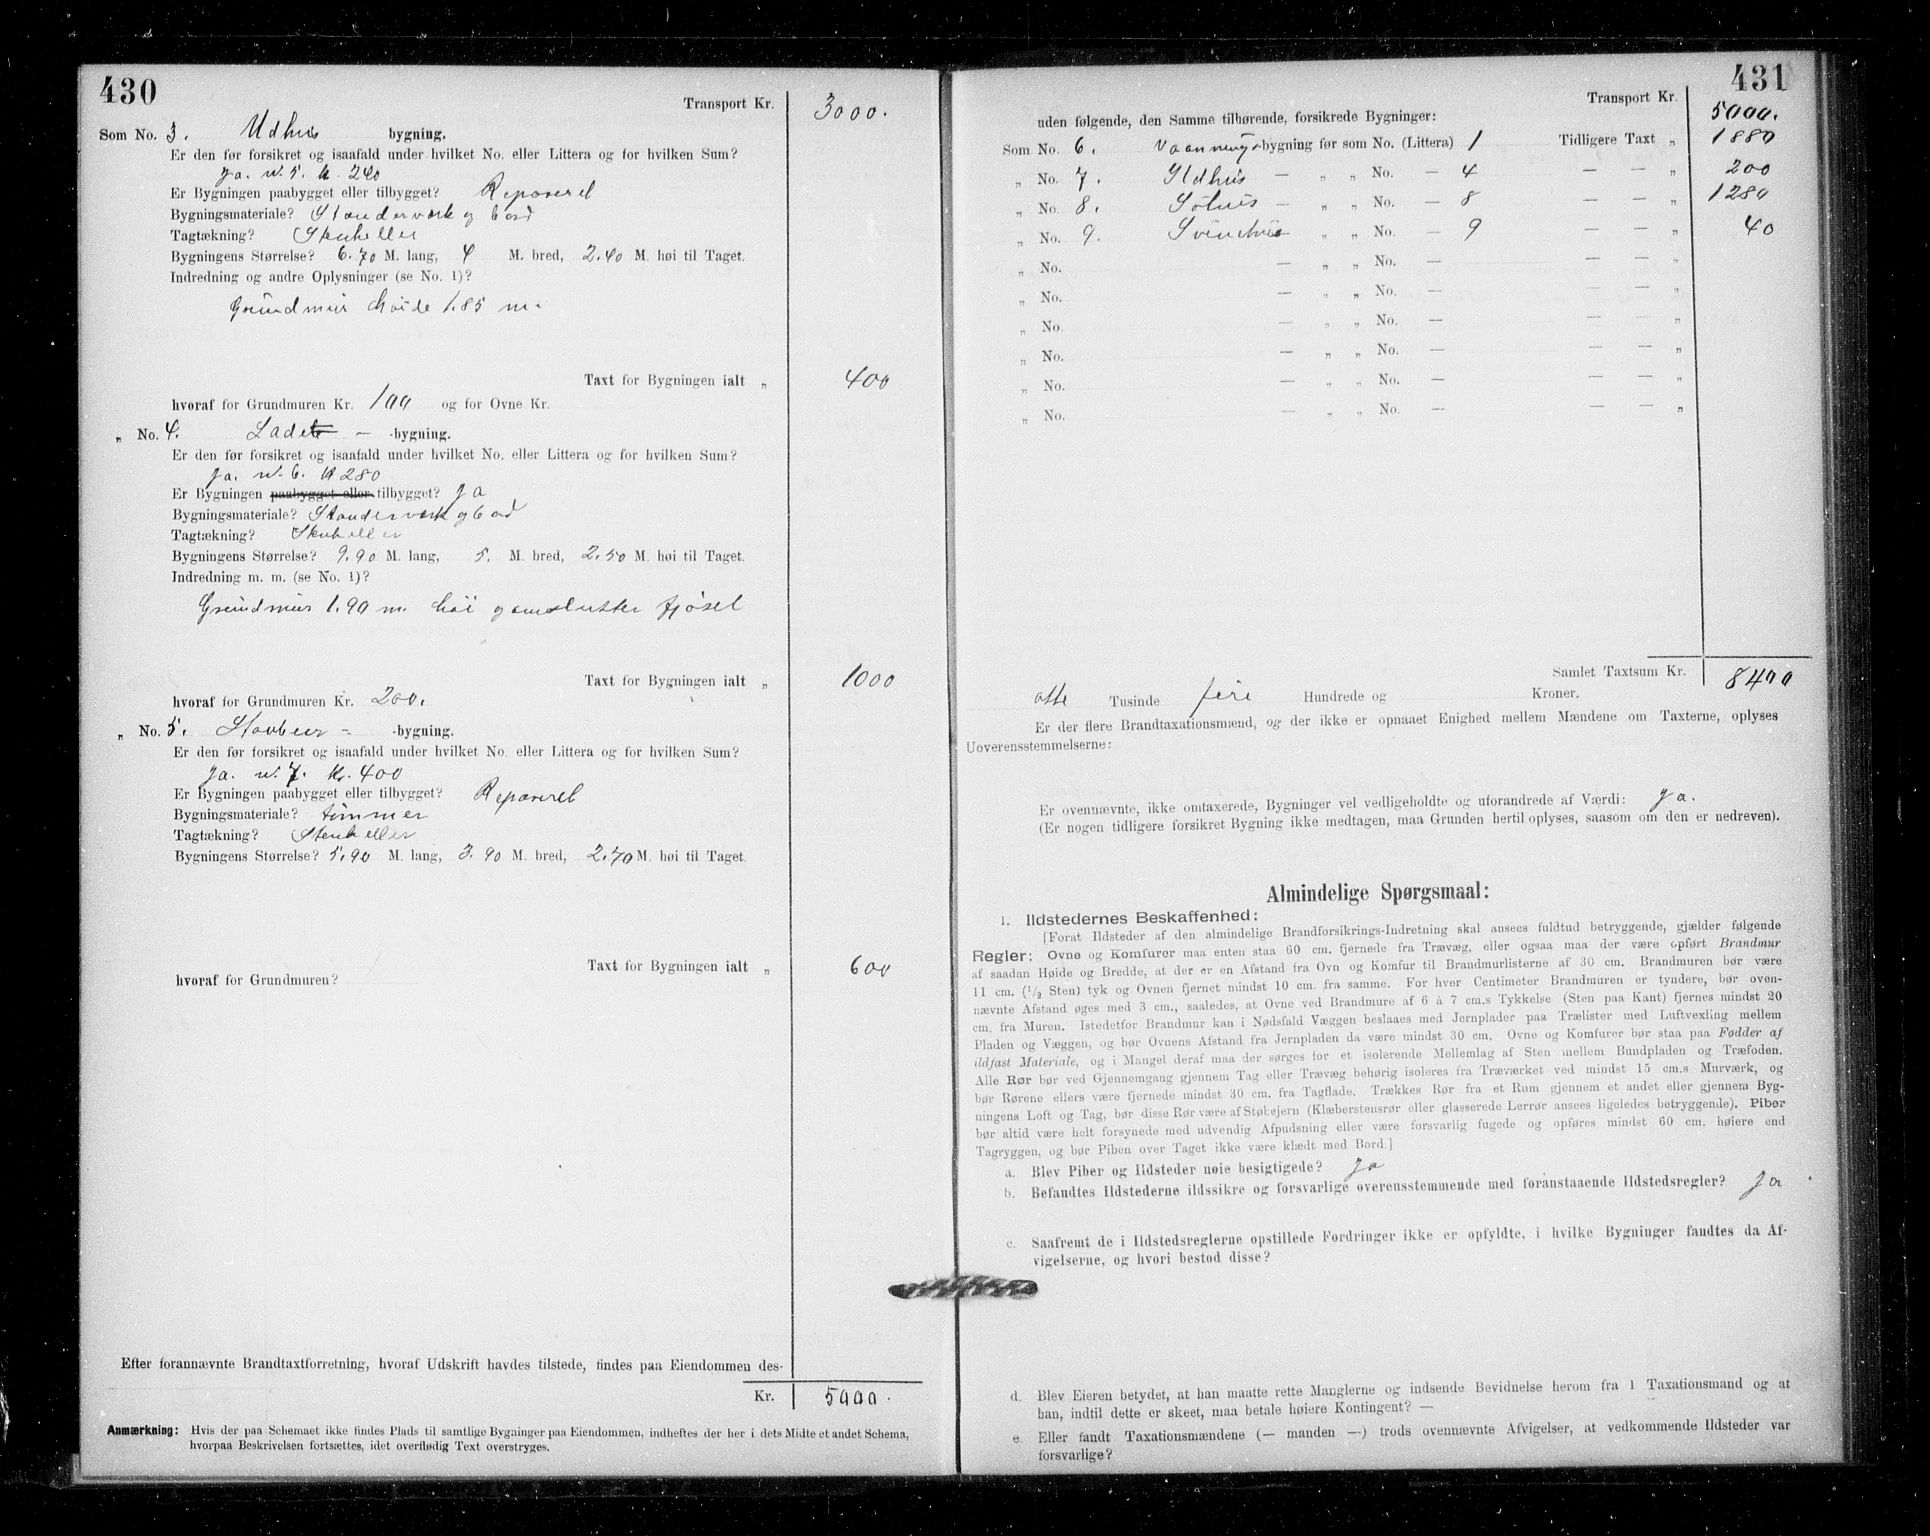 430
Transport Kr. 3000.
Som No. 3. Udhus bygning.
Er den før forsikret og isaafald under hvilket No. eller Littera og for hvilken Sum?
Ja. N. 5. K. 240
Er Bygningen paabygget eller tilbygget? Repareret
Bygningsmateriale? Standerværk og bord
Tagtækning? Stenheller
Bygningens Størrelse? 6.70 M. lang, 4 M. bred, 2.40 M. høi til Taget.
Indredning og andre Oplysninger (se No. 1)?
Grundmur høide 1.85 m.
Taxt for Bygningen ialt „ 400
hvoraf for Grundmuren Kr. 100 og for Ovne Kr.
„ No. 4. Lade – -bygning.
Er den før forsikret og isaafald under hvilket No. eller Littera og for hvilken Sum?
Ja. N. 6. K 280
Er Bygningen paabygget eller tilbygget? Ja
Bygningsmateriale? Standerværk og bord
Tagtækning? Stenheller
Bygningens Størrelse? 9.90 M. lang, 5. M. bred, 2.50 M. høi til Taget.
Indredning m. m. (se No. 1)?
Grundmur 1.90 m. høi omslutter fjøset
Taxt for Bygningen ialt „ 1000
hvoraf for Grundmuren Kr. 200.
„ No. 5. Stabbur – -bygning.
Er den før forsikret og isaafald under hvilket No. eller Littera og for hvilken Sum?
Ja. N. 7. Kr. 400
Er Bygningen paabygget eller tilbygget? Repareret
Bygningsmateriale? tømmer
Tagtækning? Stenheller
Bygningens Størrelse? 5.90 M. lang, 3.90 M. bred, 2.70 M. høi til Taget.
Taxt for Bygningen ialt „ 600
hvoraf for Grundmuren?
Efter forannævnte Brandtaxtforretning, hvoraf Udskrift havdes tilstede, findes paa Eiendommen des-
Kr. 5000.
Anmærkning: Hvis der paa Schemaet ikke findes Plads til samtlige Bygninger paa Eiendommen, indheftes der her i dets Midte et andet Schema,
hvorpaa Beskrivelsen fortsættes, idet overflødig Text overstryges.
431
Transport Kr. 5000.
uden følgende, den Samme tilhørende, forsikrede Bygninger:
Som No. 6. Vaanings-bygning før som No. (Littera) 1 Tidligere Taxt „ 1880
„ No. 7. Ildhus — „ „ No. — 4 — — „ 200
„ No. 8. Søhus — „ „ No. — 8 — — „ 1280
„ No. 9. Svinehus „ „ No. — 9 — — „ 40
„ No. — „ „ No. — — — „
„ No. — „ „ No. — — — „
„ No. — „ „ No. — — — „
„ No. — „ „ No. — — — „
„ No. — „ „ No. — — — „
„ No. — „ „ No. — — — „
Samlet Taxtsum Kr. 8400
otte Tusinde fire Hundrede og Kroner.
Er der flere Brandtaxationsmænd, og der ikke er opnaaet Enighed mellem Mændene om Taxterne, oplyses
Uoverensstemmelserne:
Er ovennævnte, ikke omtaxerede, Bygninger vel vedligeholdte og uforandrede af Værdi: Ja.
(Er nogen tidligere forsikret Bygning ikke medtagen, maa Grunden hertil oplyses, saasom om den er nedreven).
Almindelige Spørgsmaal:
1. Ildstedernes Beskaffenhed:
[Forat Ildsteder af den almindelige Brandforsikrings-Indretning skal ansees fuldtud betryggende, gjælder følgende
Regler: Ovne og Komfurer maa enten staa 60 cm. fjernede fra Trævæg, eller ogsaa maa der være opført Brandmur
af saadan Høide og Bredde, at der er en Afstand fra Ovn og Komfur til Brandmurlisterne af 30 cm. Brandmuren bør være
11 cm. (1/2 Sten) tyk og Ovnen fjernet mindst 10 cm. fra samme. For hver Centimeter Brandmuren er tyndere, bør oven-
nævnte Afstand øges med 3 cm., saaledes, at Ovne ved Brandmure af 6 à 7 cm.s Tykkelse (Sten paa Kant) fjernes mindst 20
cm. fra Muren. Istedetfor Brandmur kan i Nødsfald Væggen beslaaes med Jernplader paa Trælister med Luftvexling mellem
Pladen og Væggen, og bør Ovnens Afstand fra Jernpladen da være mindst 30 cm. Ovne og Komfurer bør staa paa Fødder af
ildfast Materiale, og i Mangel deraf maa der sørges for et isolerende Mellemlag af Sten mellem Bundpladen og Træfoden.
Alle Rør bør ved Gjennemgang gjennem Tag eller Trævæg behørig isoleres fra Træværket ved mindst 15 cm.s Murværk, og
bør Rørene ellers være fjernede mindst 30 cm. fra Tagflade. Trækkes Rør fra et Rum gjennem et andet eller gjennem Byg-
ningens Loft og Tag, bør disse Rør være af Støbejern (Klæberstensrør eller glasserede Lerrør ansees ligeledes betryggende). Piber
bør altid være helt forsynede med udvendig Afpudsning eller være forsvarlig fugede og opføres mindst 60 cm. høiere end
Tagryggen, og bør Piben over Taget ikke være klædt med Bord.]
a. Blev Piber og Ildsteder nøie besigtigede? Ja
b. Befandtes Ildstederne ildssikre og forsvarlige overensstemmende med foranstaaende Ildstedsregler? Ja
c. Saafremt de i Ildstedsreglerne opstillede Fordringer ikke er opfyldte, i hvilke Bygninger fandtes da Af-
vigelserne, og hvori bestod disse?
d. Blev Eieren betydet, at han maatte rette Manglerne og indsende Bevidnelse herom fra 1 Taxationsmand og at
han, indtil dette er skeet, maa betale høiere Kontingent? —
e. Eller fandt Taxationsmændene (— manden —) trods ovennævnte Afvigelser, at vedkommende Ildsteder var
forsvarlige?